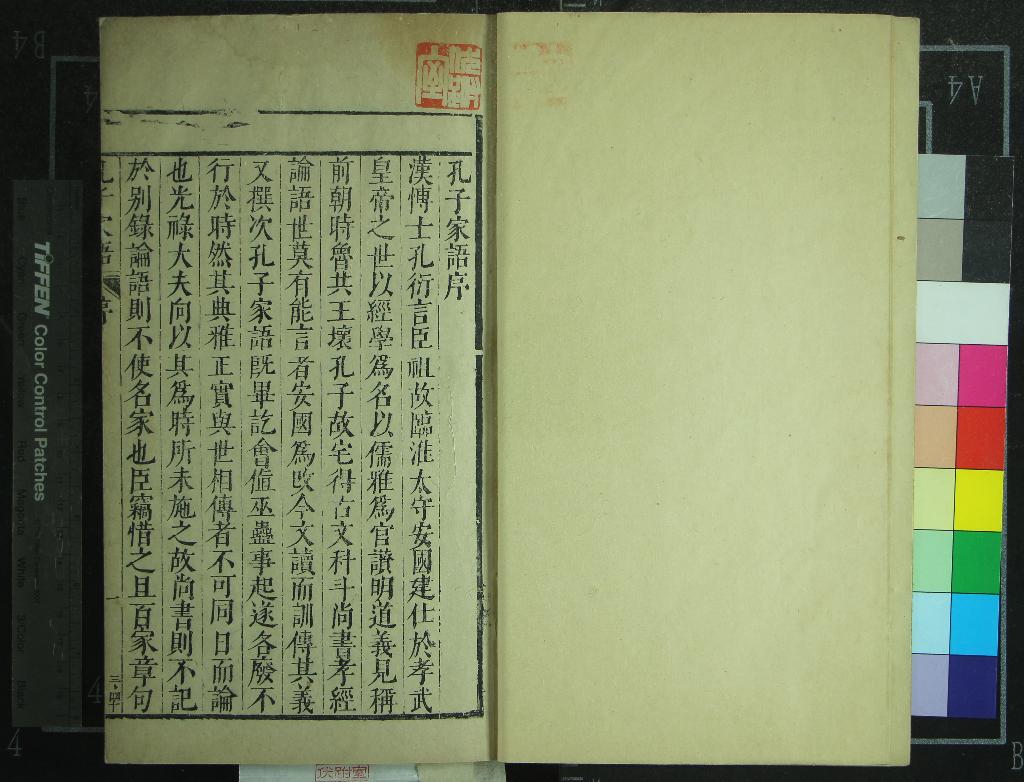 孔子家語序
漢愽士孔衍言臣祖故臨淮太守安國建仕於孝武
皇帝之世以經學爲名以儒雅爲官讃明道義見稱
前朝時魯共王壞孔子故宅得古文科斗尚書孝經
論語世莫有能言者安國爲攺今文讀而訓傳其義
又撰次孔子家語既畢訖會值巫蠱事起遂各廢不
行於時然其典雅正實與世相傳者不可同日而論
也光祿大夫向以其爲時所未施之故尚書則不記
於别錄論語則不使名家也臣竊惜之且百家章句
孔子家語 序
一
TIFFEN Color Control Patches
Blue Cyan Green Yellow Red Magenta White 3/Color Black
A4
B4
4
4
4
B